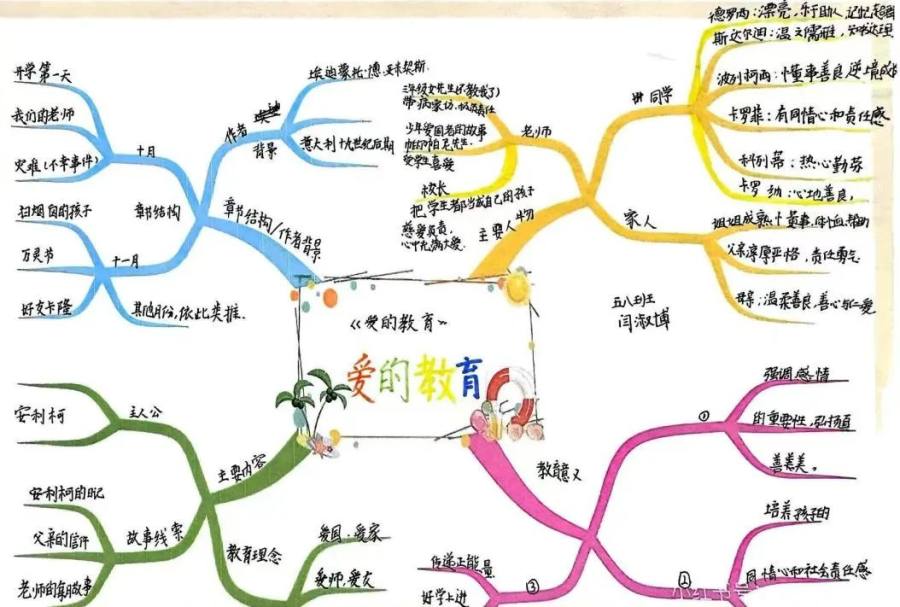 《爱的教育》
爱的教育
章节结构/作者背景
作者
背景
埃迪蒙托·德·亚米契斯
意大利
章节结构
十月
开学第一天
我们的老师
灾难(不幸事件)
十一月
扫烟囱的孩子
万灵节
好友卡隆
其他月份,依此类推.
主要人物
老师
校长
把学生都当成自己的孩子
慈爱负责,
少年爱国者的故事
受学生喜爱
同学
德罗西:漂亮,乐于助人
斯达尔迪:温文儒雅,
波列柯西:懂事善良
卡罗菲:有同情心和责任感
科列蒂:热心勤劳
卡罗纳:心地善良,
家人
姐姐成熟懂事,
父亲深厚严格,责任勇气
母亲:温柔善良,善心仁爱
五八班
闫淑博
主要内容
主人公
安利柯
故事线索
安利柯的日记
父亲的信件
老师的每月故事
教育理念
爱国·爱家
爱师.爱友
教育意义
①
强调感情
的重要性,弘扬真
善美。
②
培养孩子的
同情心和社会责任感
③
传递正能量
好学上进
小红书号